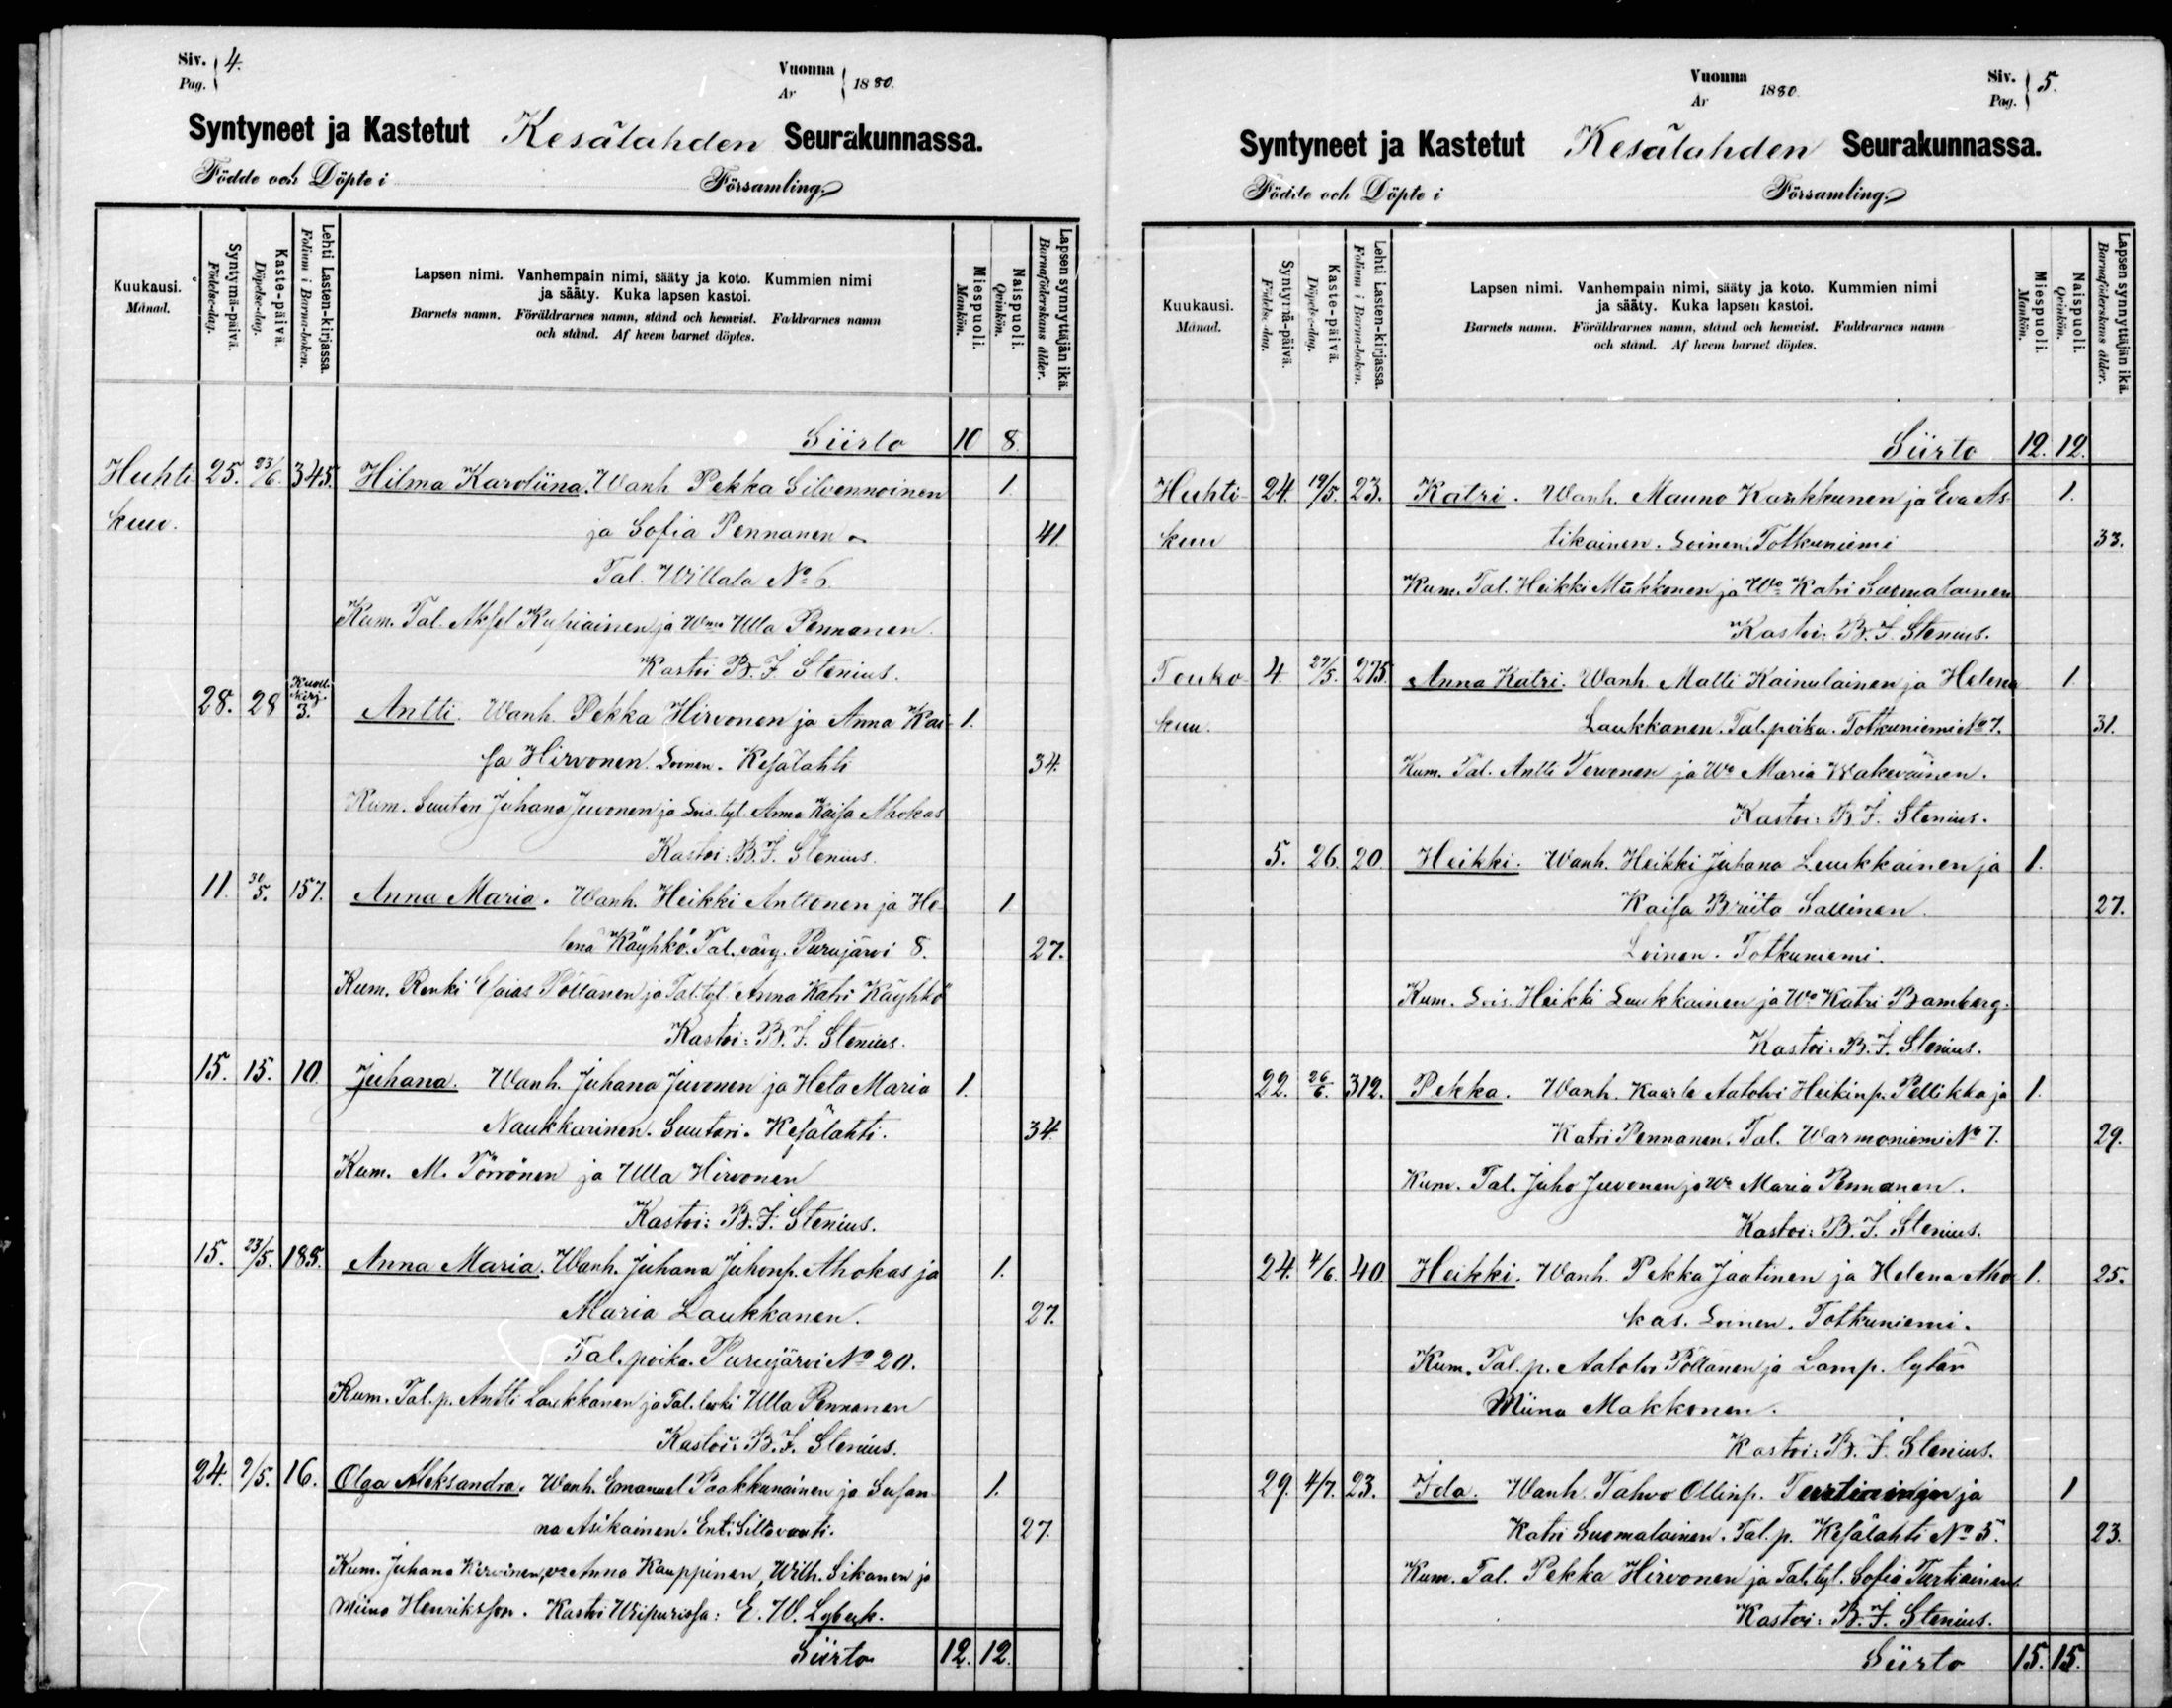 Siv. 4.
Pag.
Vuonna 1880.
År
Syntyneet ja Kastetut Kesälahden Seurakunnassa.
Födde och Döpte i Församling.
Kuukausi.
Månad.
Syntymä-päivä.
Födelse-dag.
Kaste-päivä.
Döpelse-dag.
Lehti Lasten-kirjassa.
Folium i Barna-boken.
Lapsen nimi. Vanhempain nimi, sääty ja koto. Kummien nimi
ja sääty. Kuka lapsen kastoi.
Barnets namn. Föräldrarnes namn, stånd och hemvist. Faddrarnes namn
och stånd. Af hvem barnet döptes.
Miespuoli.
Mankön.
Naispuoli.
Qvinkön.
Lapsen synnyttäjän ikä.
Barnaföderskans ålder.
Siirto 10 8
Huhti 25. 23/6. 345. Hilma Karoliina. Wanh Pekka Silvennoinen 1.
kuu. ja Sofia Pennanen 41.
Tal. Willala No 6.
Kum. Tal. Aksel Kupiainen ja Wmo Ulla Pennanen.
Kastoi B. F. Stenius.
28. 28 Kuoll. kirj. 3. Antti. Wanh. Pekka Hirvonen ja Anna Kai- 1.
sa Hirvonen. Loinen. Kesälahti 34.
Kum. Suutari Juhana Juvonen ja Lois. tyt. Anna Kaisa Ahokas
Kastoi: B. F. Stenius.
11. 30/5. 157. Anna Maria. Wanh. Heikki Anttonen ja He- 1.
lena Käyhkö. Tal. vävy. Purujärvi 8. 27.
Kum. Renki Esaias Pöllänen ja Tal. tyt. Anna Katri Käyhkö
Kastoi: B. F. Stenius.
15. 15. 10 Juhana. Wanh. Juhana Juvonen ja Heta Maria 1.
Naukkarinen. Suutari. Kesälahti. 34
Kum. M. Törrönen ja Ulla Hirvonen
Kastoi: B. F. Stenius.
15. 23/5. 185. Anna Maria. Wanh. Juhana Juhonp. Ahokas ja 1.
Maria Laukkanen. 27.
Tal. poika. Purujärvi No 20.
Kum. Tal. p. Antti Laukkanen ja Tal. leski Ulla Pennanen
Kastoi: B. F. Stenius.
24. 9/5. 16. Olga Aleksandra. Wanh. Emanuel Paakkunainen ja Susan- 1.
na Asikainen. Ent. Siltavouti. 27.
Kum. Juhana Kirvinen, Anna Kauppinen, Wilh. Sikanen ja
Miina Henriksson. Kastoi Wiipurissa: E. W. Lybeck.
Siirto 12. 12.
Vuonna 1880.
År
Siv. 5.
Pag.
Syntyneet ja Kastetut Kesälahden Seurakunnassa.
Födde och Döpte i Församling.
Kuukausi.
Månad.
Syntymä-päivä.
Födelse-dag.
Kaste-päivä.
Döpelse-dag.
Lehti Lasten-kirjassa.
Folium i Barna-boken.
Lapsen nimi. Vanhempain nimi, sääty ja koto. Kummien nimi
ja sääty. Kuka lapsen kastoi.
Barnets namn. Föräldrarnes namn, stånd och hemvist. Faddrarnes namn
och stånd. Af hvem barnet döptes.
Miespuoli.
Mankön.
Naispuoli.
Qvinkön.
Lapsen synnyttäjän ikä.
Barnaföderskans ålder.
Siirto 12. 12.
Huhti- 24. 19/5. 23. Katri. Wanh. Mauno Karkkunen ja Eva As- 1.
kuu tikainen. Loinen. Totkuniemi 33.
Kum. Tal. Heikki Mükkonen ja Wo Katri Suomalainen
Kastoi: B. F. Stenius.
Touko- 4. 27/5. 275. Anna Katri. Wanh. Matti Kainulainen ja Helena 1.
kuu. Laukkanen. Tal. poika. Totkuniemi No 7. 31.
Kum. Tal. Antti Tervonen ja Wo Maria Wäkeväinen.
Kastoi: B. F. Stenius.
5. 26. 20 Heikki. Wanh. Heikki Juhana Luukkainen ja 1.
Kaisa Briita Sallinen. 27.
Loinen. Totkuniemi.
Kum. Lois. Heikki Luukkainen ja Wo Katri Bamberg.
Kastoi: B. F. Stenius.
22. 26/6. 312. Pekka. Wanh. Kaarle Aatolvi Heikinp. Pellikka ja 1.
Katri Pennanen. Tal. Warmoniemi No 7. 29.
Kum. Tal. Juho Juvonen ja Wo Maria Pennanen.
Kastoi: B. F. Stenius.
24. 4/6. 40. Heikki. Wanh. Pekka Jaatinen ja Helena Aho- 1. 25.
kas. Loinen. Totkuniemi.
Kum. Tal. p. Aatolvi Pöllänen ja Lamp. tytär
Miina Makkonen.
Kastoi: B. F. Stenius.
29. 4/7. 23. Ida. Wanh. Tahvo Ollinp. Turtiainen ja 1
Katri Suomalainen. Tal. p. Kesälahti No 5. 23.
Kum. Tal. Pekka Hirvonen ja Tal. tyt. Sofia Turtiainen.
Kastoi: B. F. Stenius.
Siirto 15. 15.